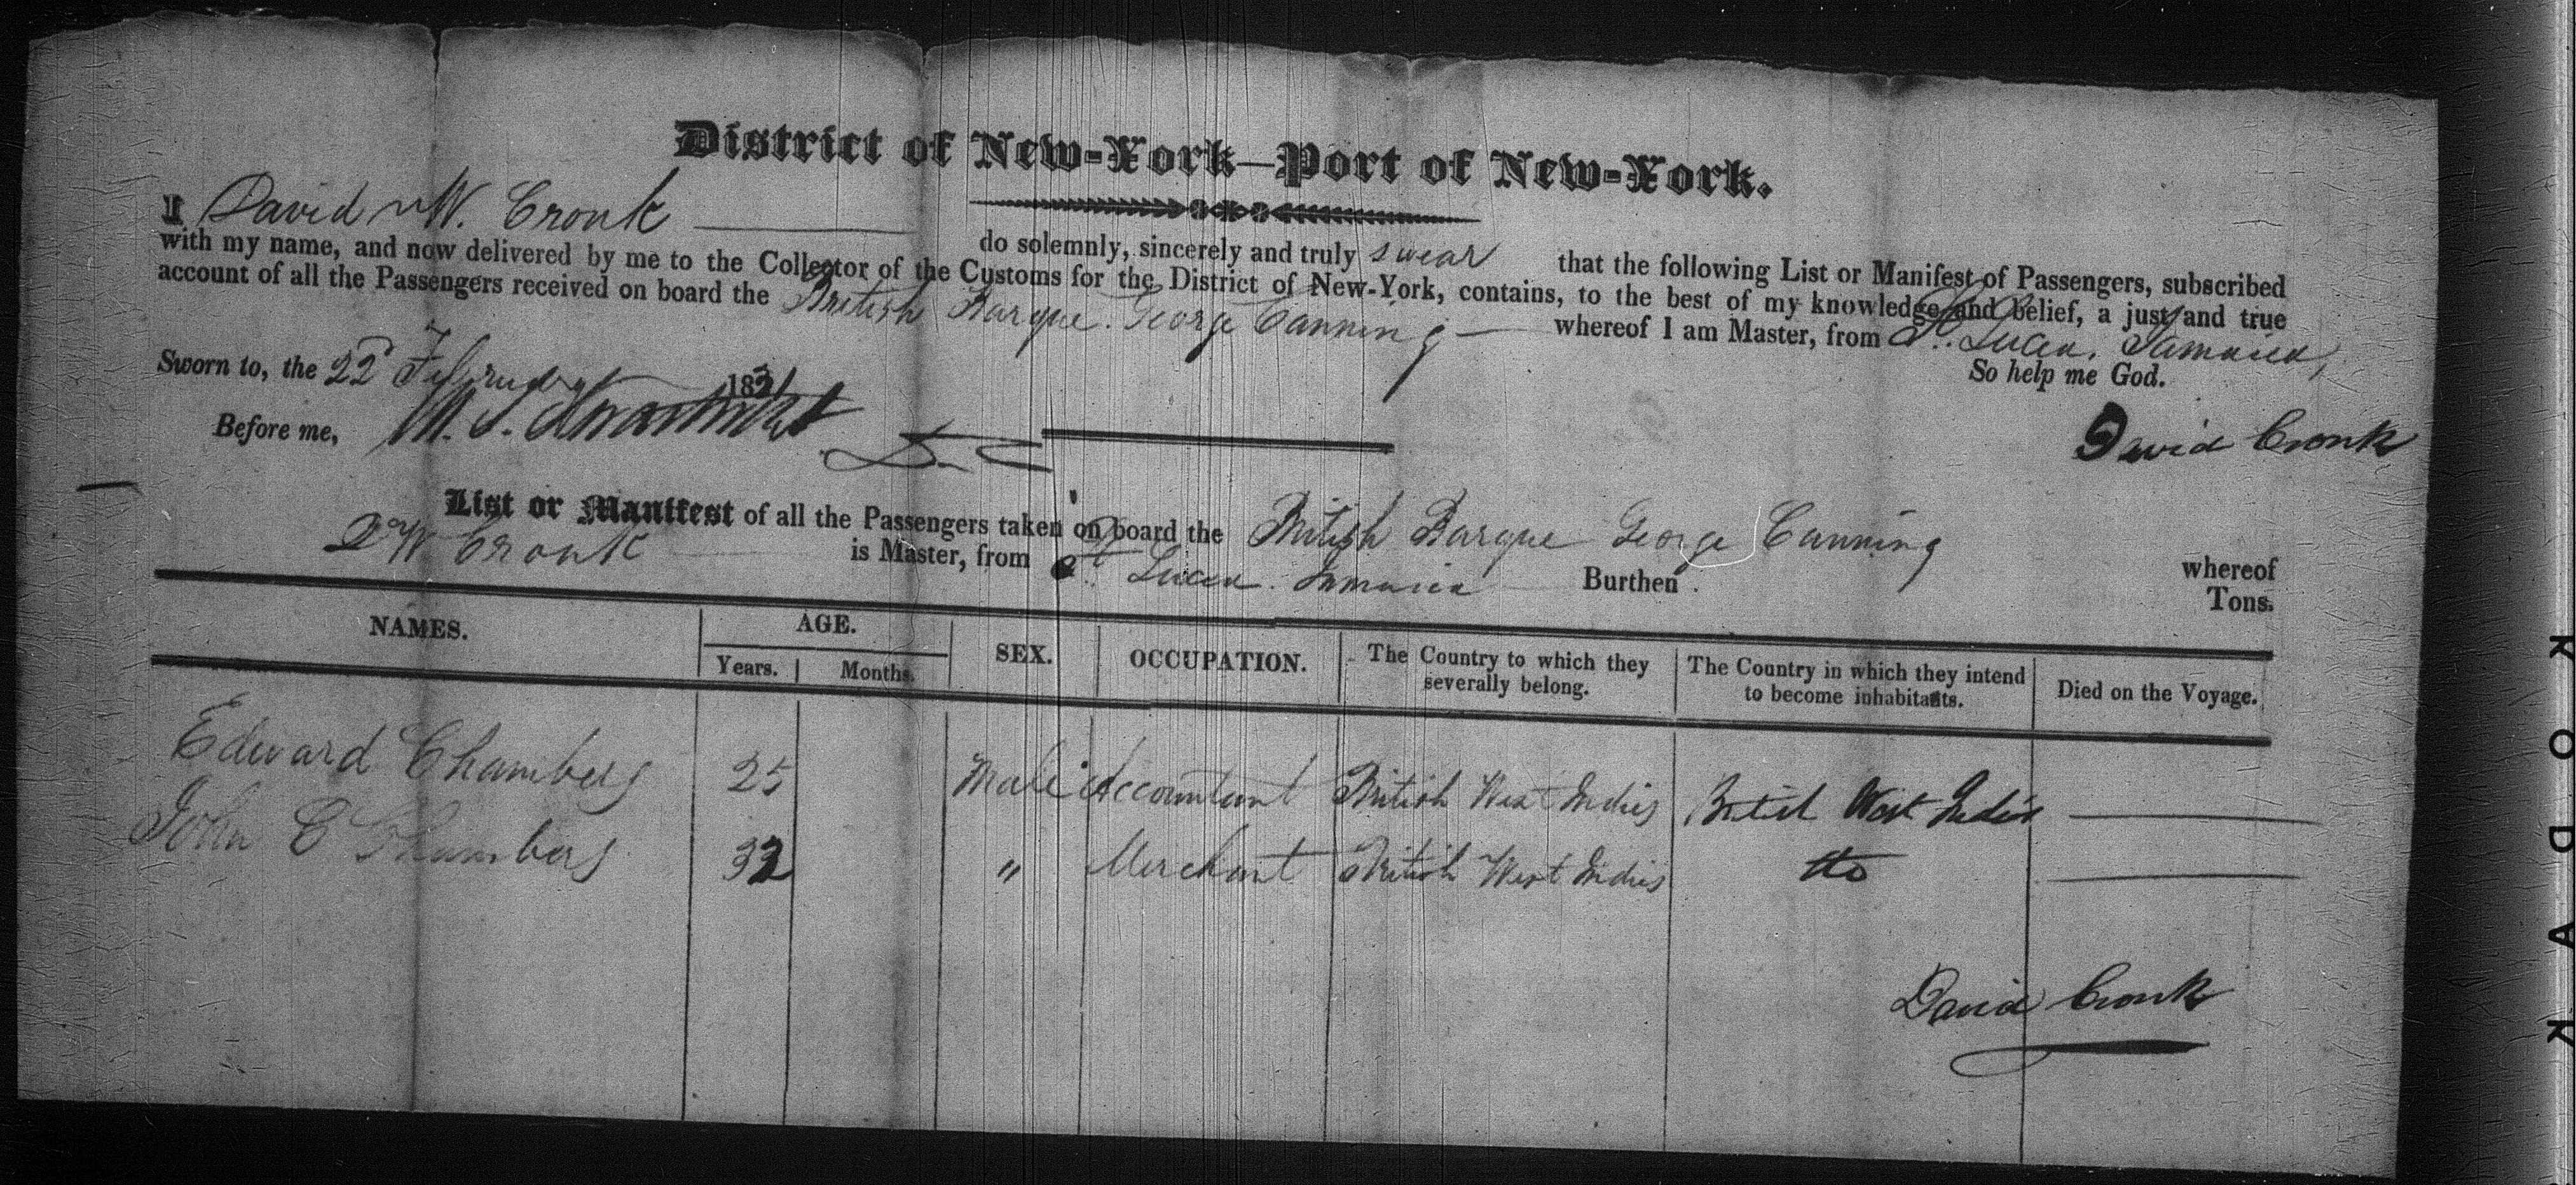 District of New-York—Port of New-York.
I David W. Cronk do solemnly, sincerely and truly swear that the following List or Manifest of Passengers, subscribed
with my name, and now delivered by me to the Collector of the Customs for the District of New-York, contains, to the best of my knowledge and belief, a just and true
account of all the Passengers received on board the British Barque George Canning whereof I am Master, from St. Lucea, Jamaica,
Sworn to, the 22d February 183 So help me God.
Before me,
David Cronk
List or Manifest of all the Passengers taken on board the British Barque George Canning whereof
D W Cronk is Master, from St. Lucea. Jamaica Burthen Tons.
NAMES. AGE. SEX. OCCUPATION. The Country to which they severally belong. The Country in which they intend to become inhabitants. Died on the Voyage.
Years. Months.
Edward Chambers 25 Male Accountant British West Indies British West Indies
John C Chambers 32 " Merchant British West Indies do
David Cronk
KODAK